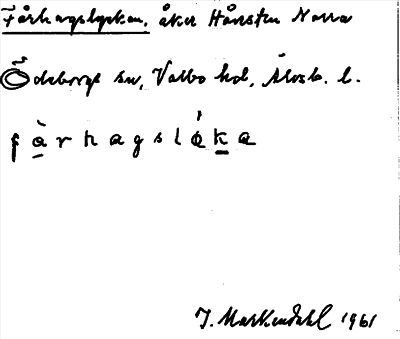 Fårhagslyckan, åker Hånsten Norra
Ödeborgs sn, Valbo hd, Älvsb. l.
fàrhagslø̀ka
J. Markendahl 1961